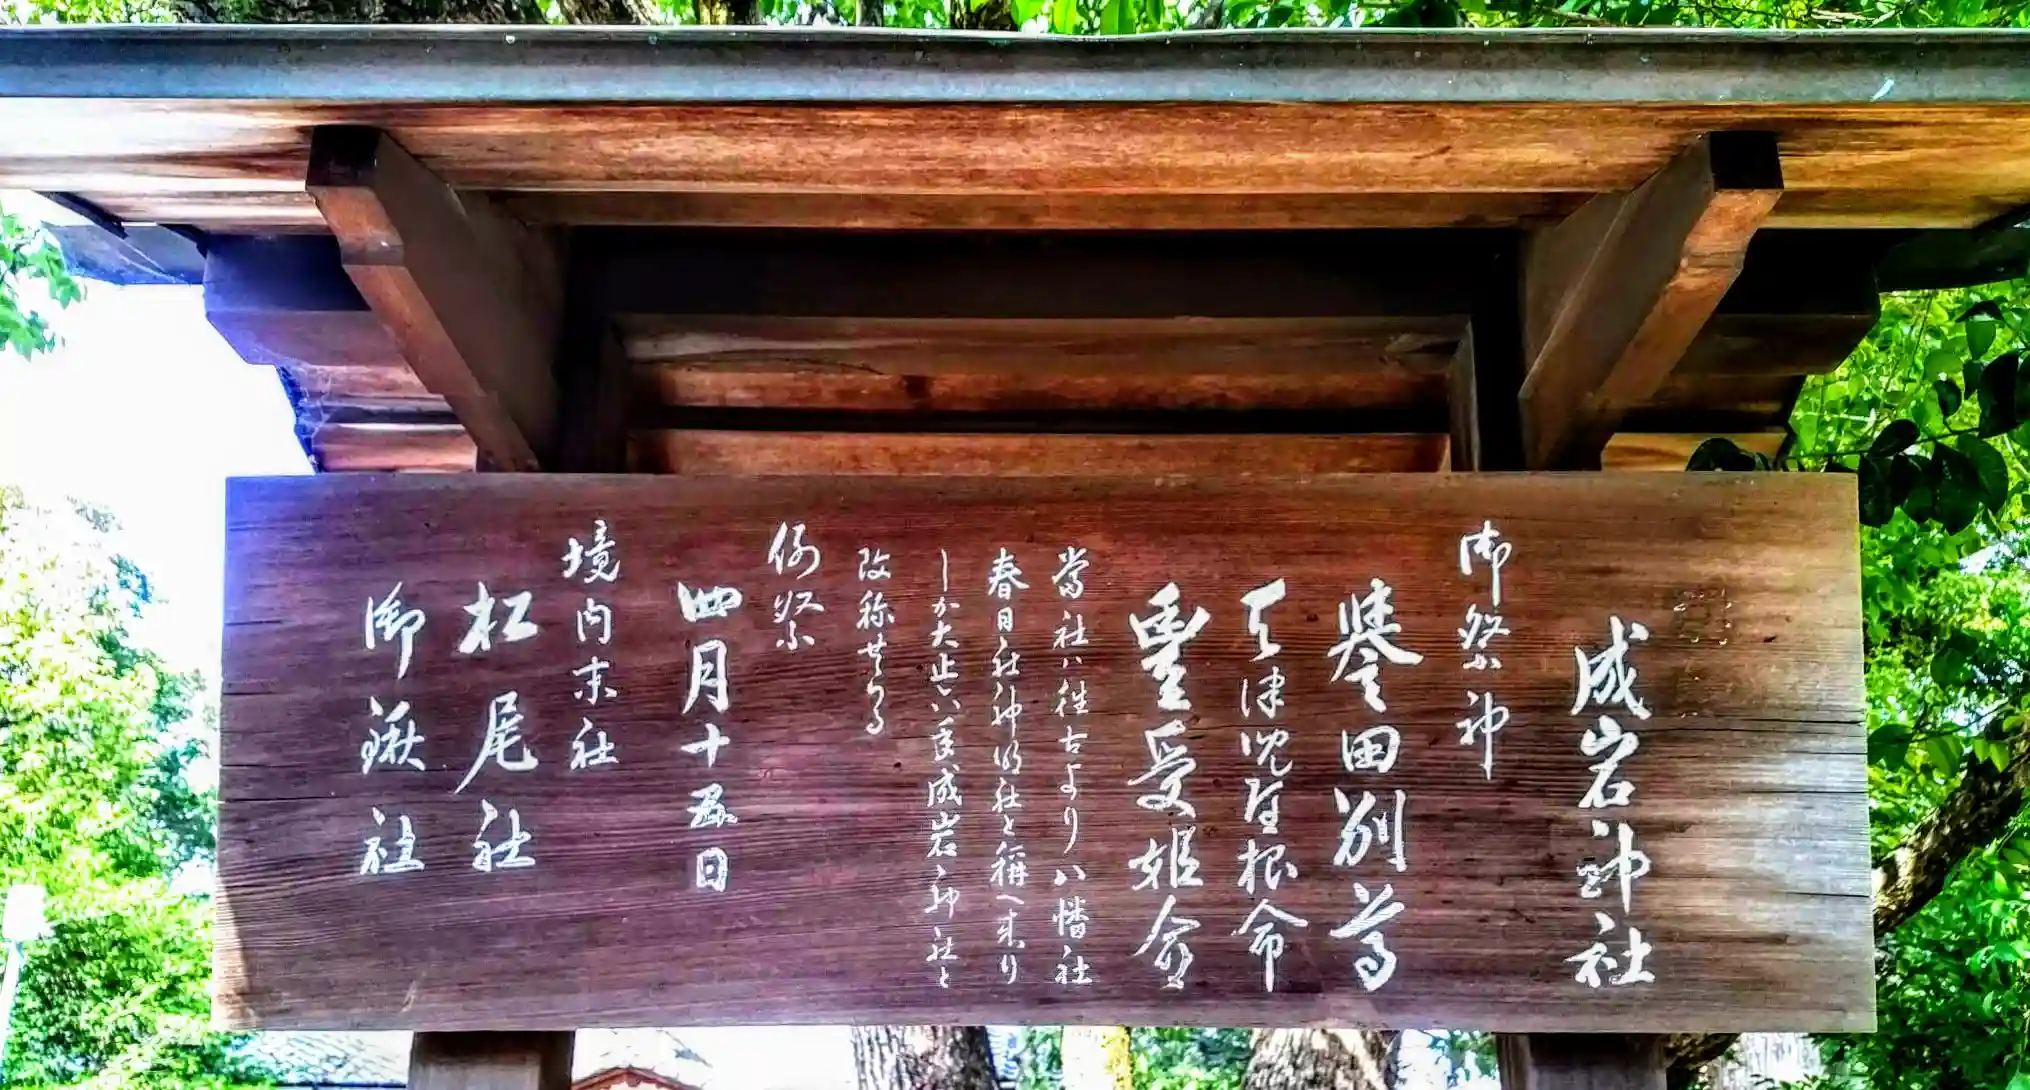 成岩神社
御祭神
誉田別尊
天津児屋根命
豊受姫命
當社ハ往古より八幡社
春日社神明社と稱へ来り
しか大正六年成岩神社と
改称せらる
例祭
四月十五日
境内末社
松尾社
御鍬社